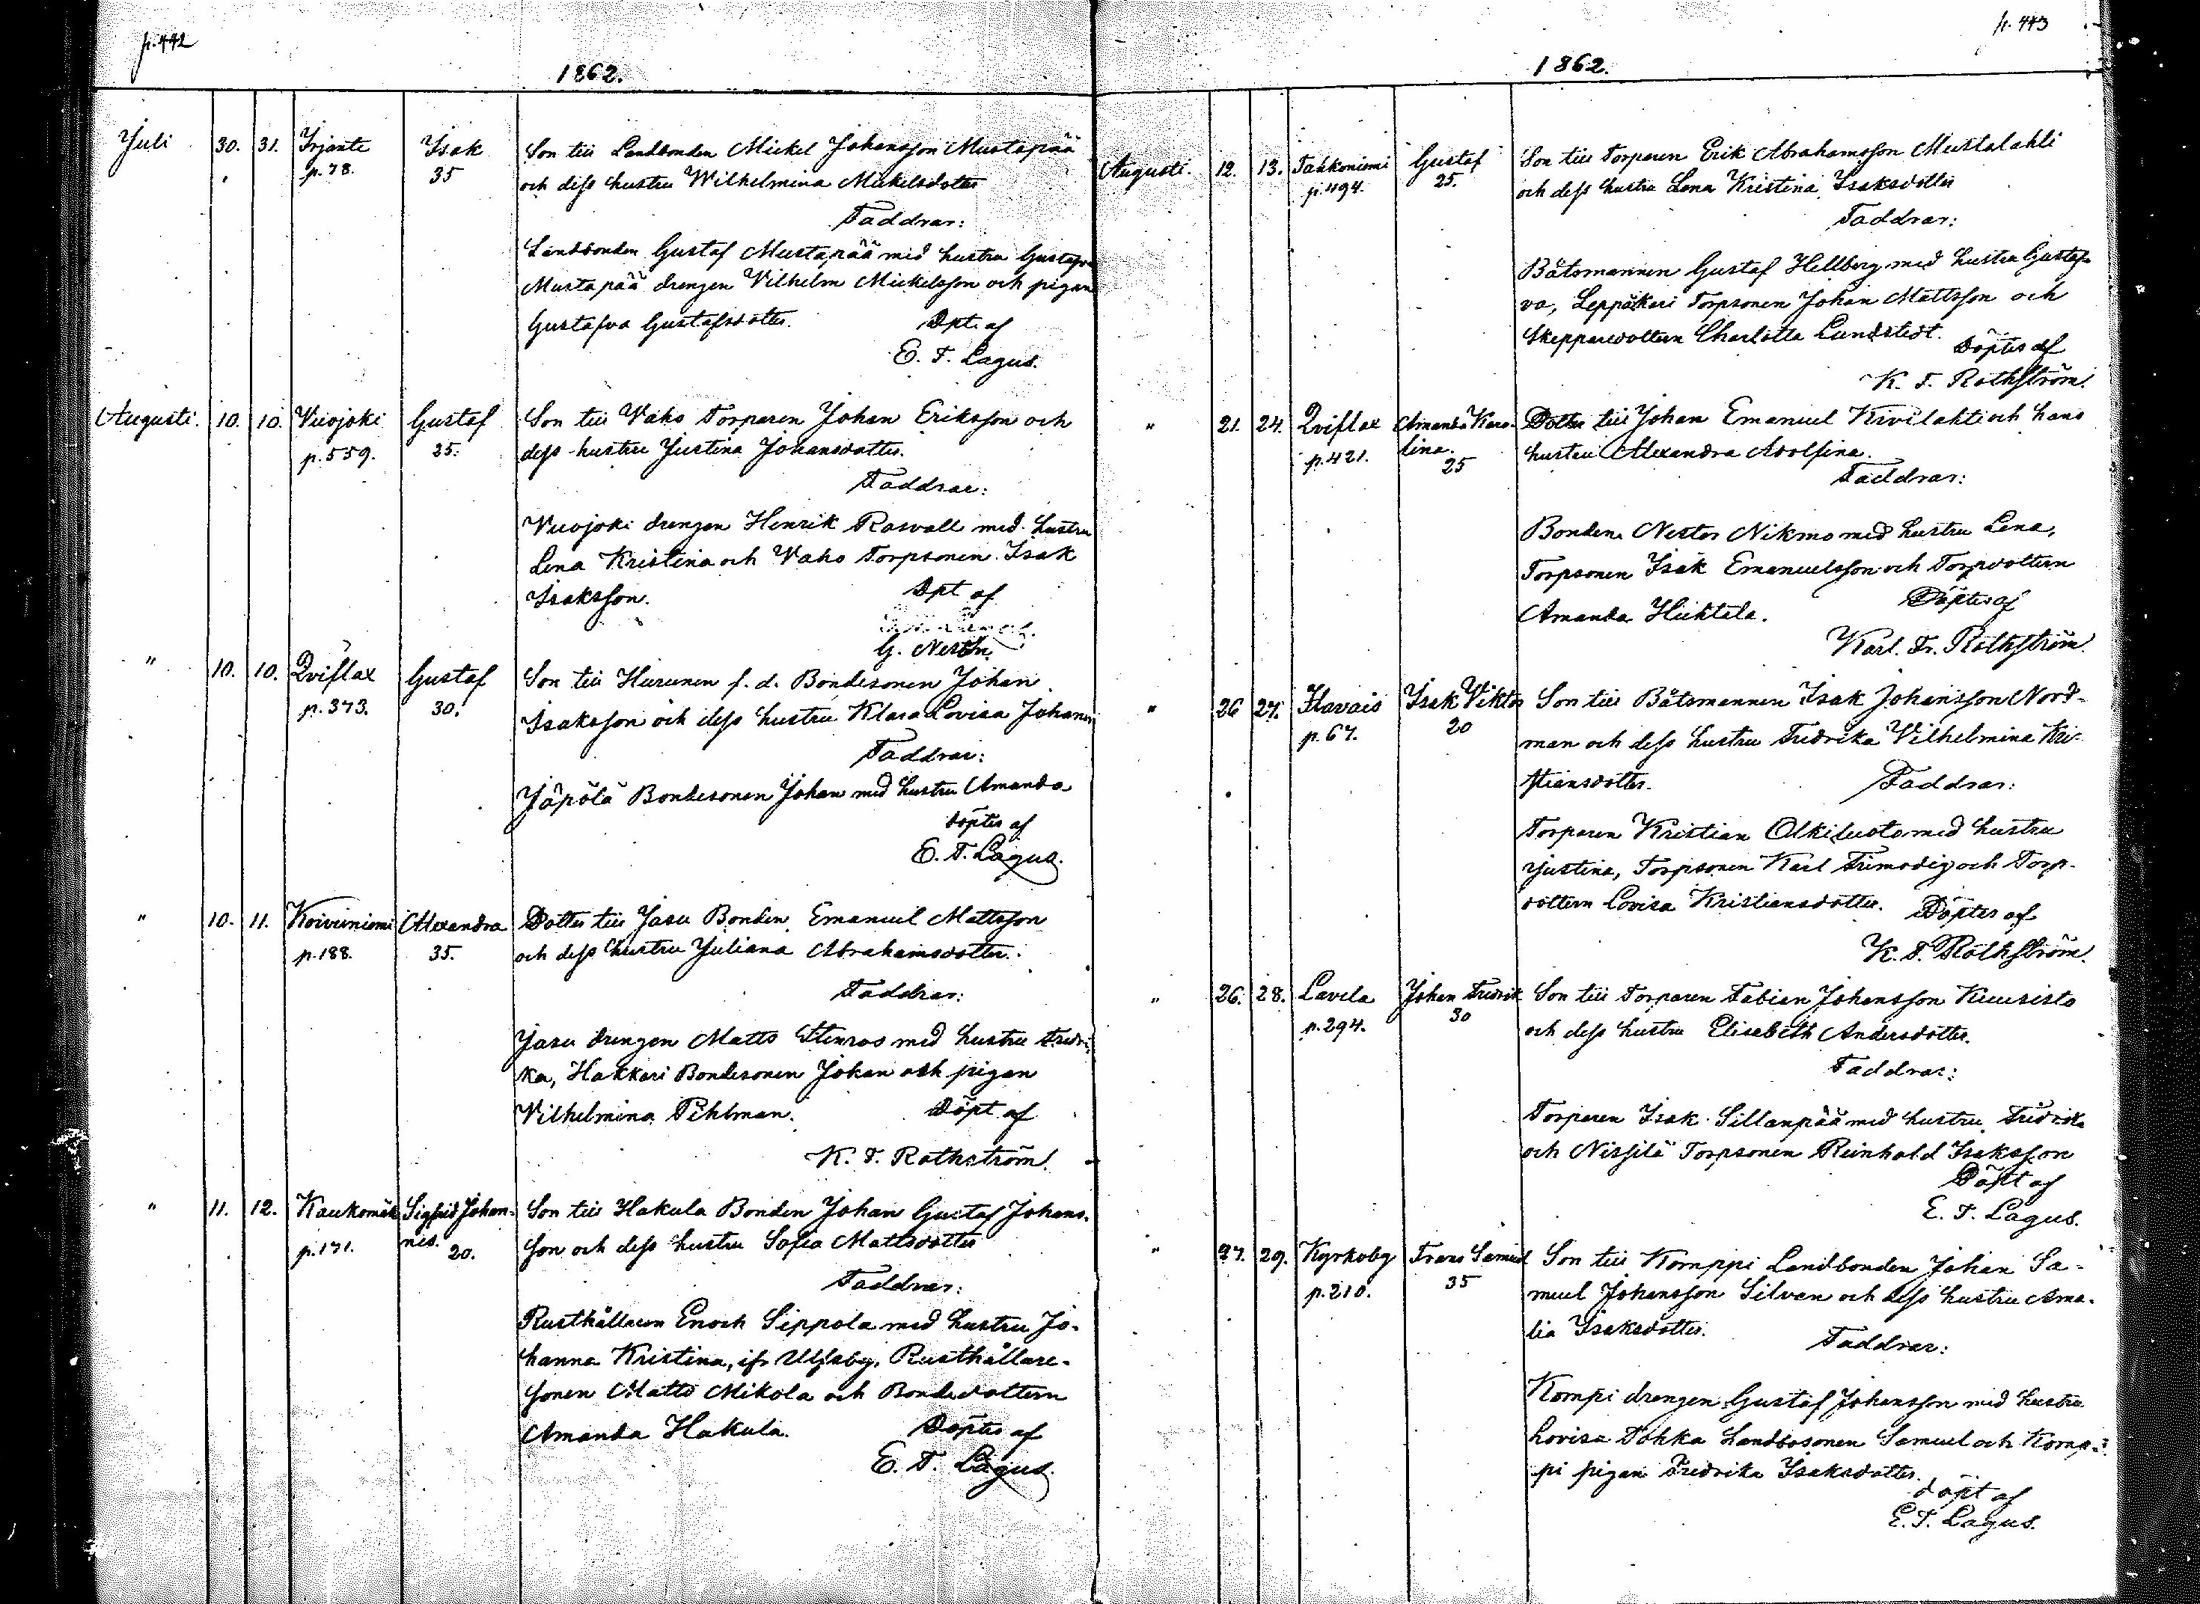 p. 442
1862.
Juli 30. 31. Irjante Isak Son till Landbonden Mickel Johansson Mustapää
p. 78. 35 och dess hustru Wilhelmina Mickelsdotter
Faddrar:
Landbonden Gustaf Mustapää med hustru Gustafva
Mustapää drengen Vilhelm Mickelsson och pigan
Gustafva Gustafsdotter. Dpt. af
E. F. Lagus.
Augusti. 10. 10. Vuojoki Gustaf Son till Vaho Torparen Johan Eriksson och
p. 559. 25. dess hustru Justina Johansdotter.
Faddrar:
Vuojoki drengen Henrik Rosvall med hustru
Lena Kristina och Vaho Torpsonen Isak
Isaksson. Dpt af
G. Neslin.
" 10. 10. Qviflax Gustaf Son till Hurunen f. d. Bondesonen Johan
p. 373. 30. Isaksson och dess hustru Klara Lovisa Johans
Faddrar:
Jäpölä Bondesonen Johan med hustru Amanda
döptes af
E. F. Lagus.
" 10. 11. Koivuniemi Alexandra Dotter till Jasu Bonden Emanuel Mattsson
p. 188. 35. och dess hustru Juliana Abrahamsdotter.
Faddrar:
Jasu drengen Matts Stenros med hustru Fredri-
ka, Hakkari Bondesonen Johan och pigan
Vilhelmina Pihlman. Döpt af
K. F. Rothström.
" 11. 12. Kaukomäk Sigfrid Johan- Son till Hakula Bonden Johan Gustaf Johans-
p. 171. nes. 20. son och dess hustru Sofia Mattsdotter
Faddrar:
Rusthållaren Enoch Sippola med hustru Jo-
hanna Kristina, ifr Ulfsby, Rusthållare-
sonen Matts Mikola och Bondedottern
Amanda Hakula. Döptes af
E. F. Lagus.
p. 443
1862.
Augusti. 12. 13. Tahkoniemi Gustaf Son till Torparen Erik Abrahamsson Mustalahti
p. 494. 25. och dess hustru Lena Kristina Isaksdotter
Faddrar:
Båtsmannen Gustaf Hellberg med hustru Gustaf-
va, Leppäkari Torpsonen Johan Mattsson och
Skepparedottern Charlotta Lundstedt. Döptes af
K. F. Rothström.
" 21. 24. Qviflax Amanda Karo- Dotter till Johan Emanuel Kivilahti och hans
p. 421. lina. 25 hustru Alexandra Adolfina.
Faddrar:
Bonden Nestor Nikmo med hustru Lena,
Torpsonen Isak Emanuelsson och Torpdottern
Amanda Huhtala. Döptes af
Karl. Fr. Rothström.
" 26 27. Ilavais Isak Viktor Son till Båtsmannen Isak Johansson Nord-
p. 67. 20 man och dess hustru Fredrika Vilhelmina Kri-
stiansdotter. Faddrar:
Torparen Kristian Olkiluoto med hustru
Justina, Torpsonen Karl Frimodig och Torp-
dottern Lovisa Kristiansdotter. Döptes af
K. F. Rothström.
" 26. 28. Lavila Johan Fredrik Son till Torparen Fabian Johansson Kuusisto
p. 294. 30 och dess hustru Elisabeth Andersdotter.
Faddrar:
Torparen Isak Sillanpää med hustru Fredrika
och Nissilä Torpsonen Reinhold Isaksson
Döpt af
E. F. Lagus.
" 27. 29. Kyrkoby Frans Samuel Son till Komppi Landbonden Johan Sa-
p. 210. 35 muel Johansson Silvan och dess hustru Ama-
lia Isaksdotter. Faddrar:
Kompi drengen Gustaf Johansson med hustru
Lovisa Landbosonen Samuel och Komp-
pi pigan Fredrika Isaksdotter.
döpt af
E. F. Lagus.